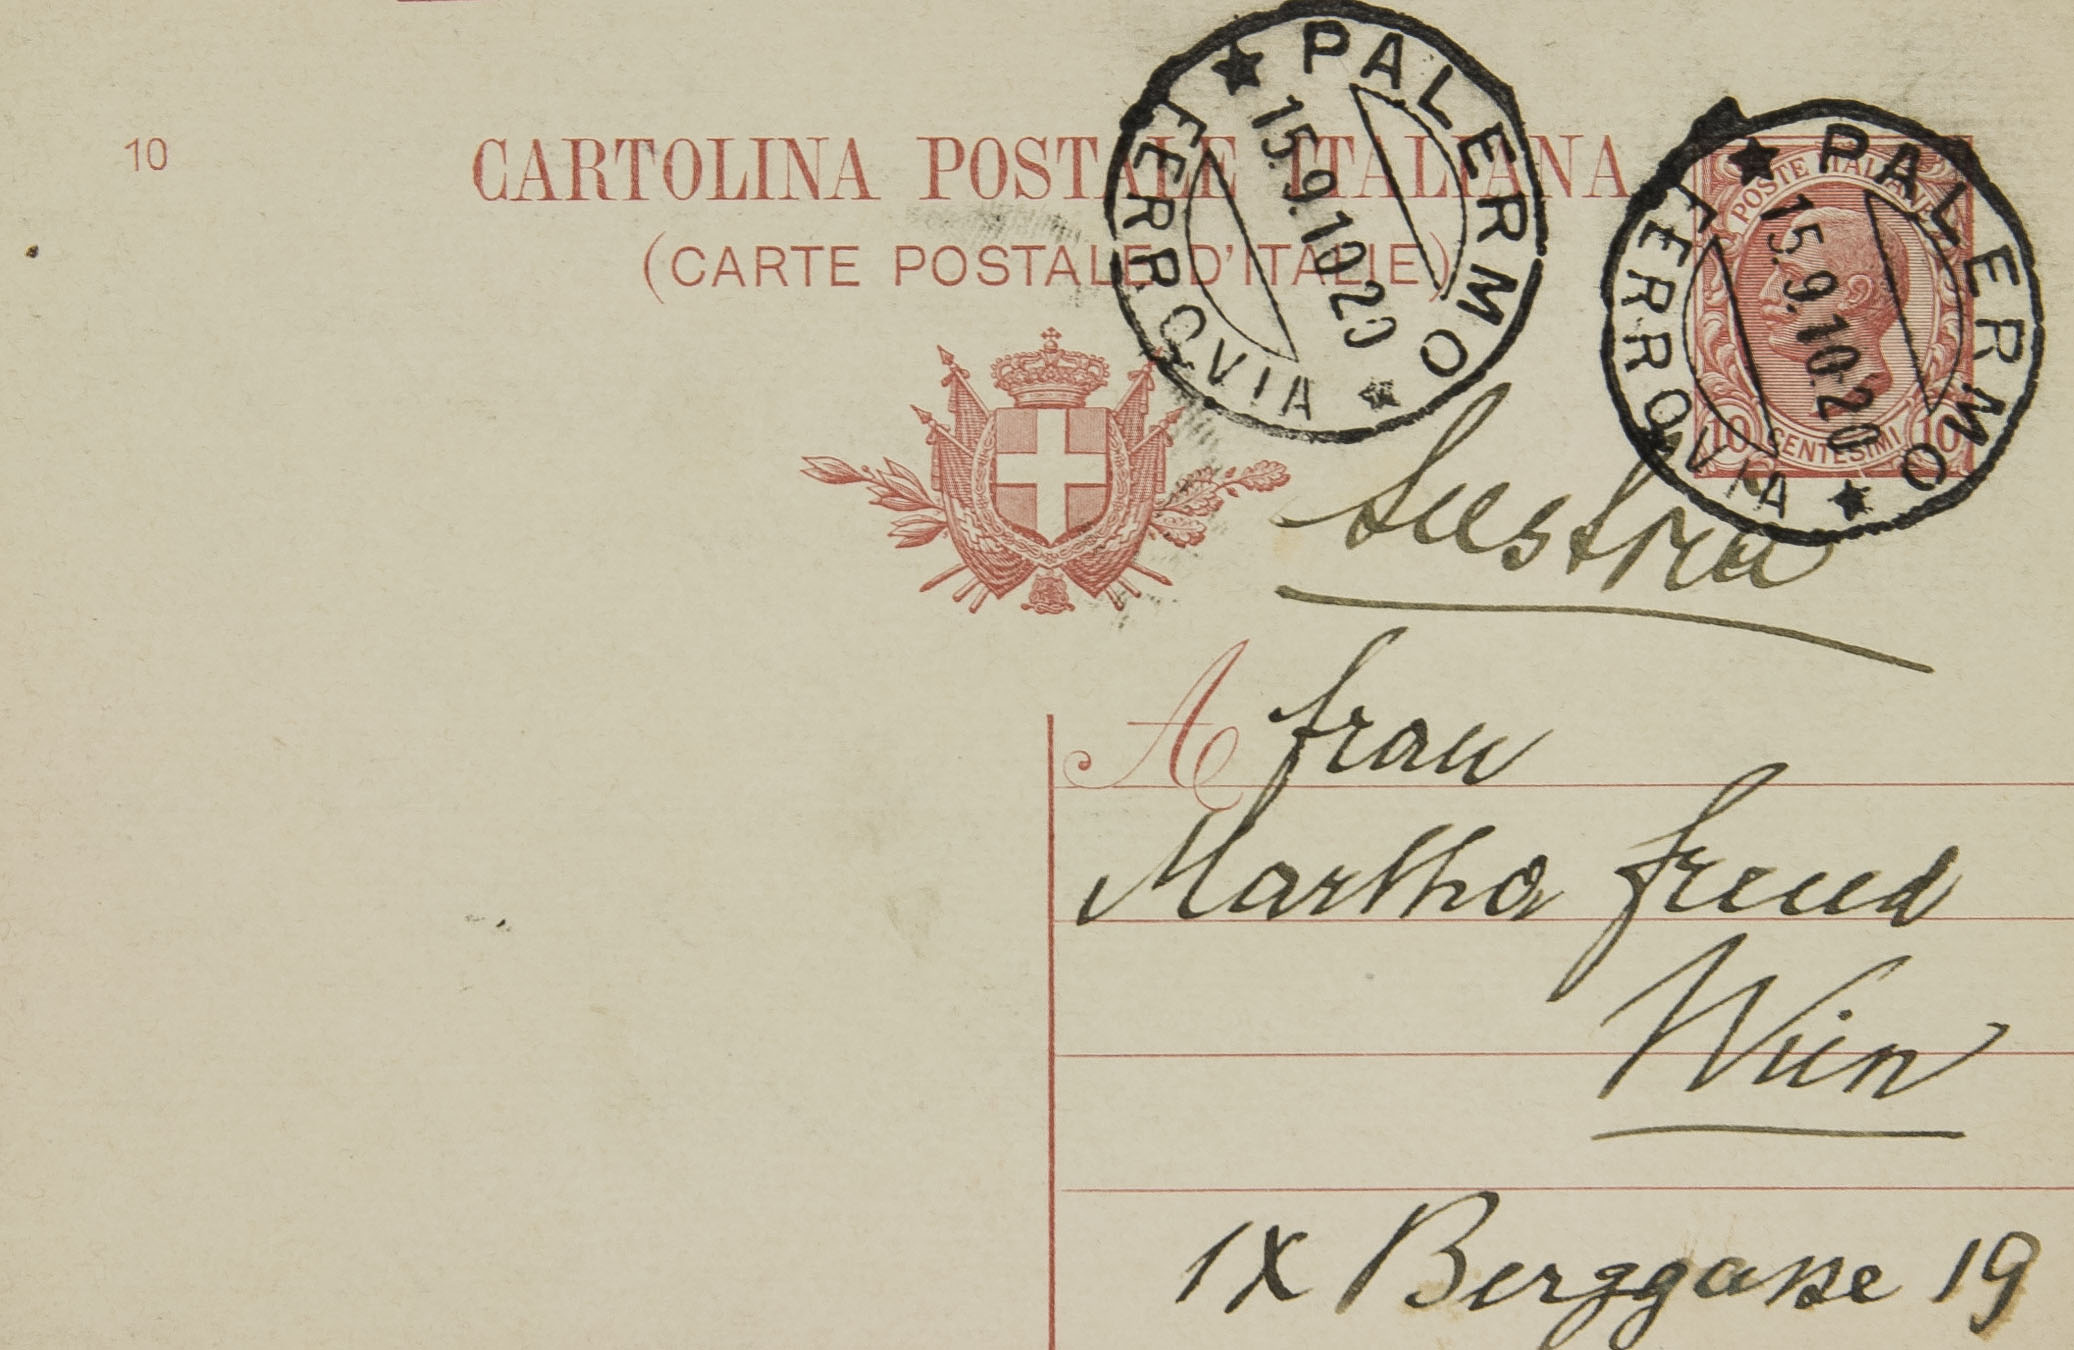 10
CARTOLINA POSTALE ITALIANA
(CARTE POSTALE D'ITALIE)
★ PALERMO ★
FERROVIA
15.9.10 20
★ PALERMO ★
FERROVIA
15.9.10.20
POSTE ITALIANE
10 CENTESIMI 10
Austria
A Frau
Martha Freud
Wien
IX Berggasse 19